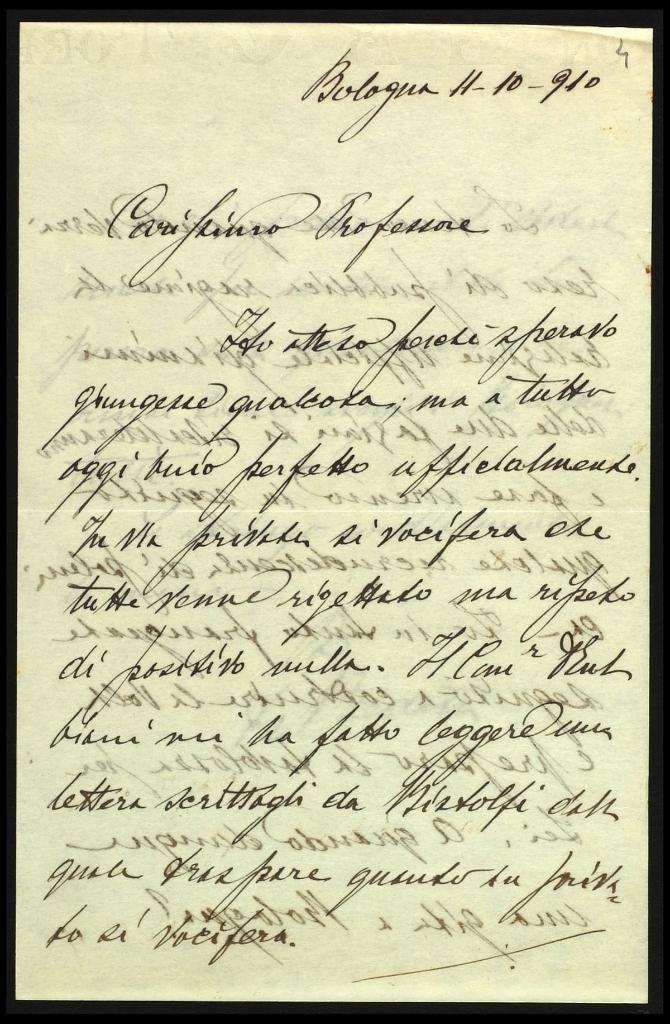 4
Bologna 11-10-910
Carissimo Professore
Ho atteso perchè speravo
giungesse qualcosa; ma a tutto
oggi buio perfetto ufficialmente.
In via privata si vocifera che
tutto venne rigettato ma ripeto
di positivo nulla. Il Com.r
biani mi ha fatto leggere una
lettera scrittagli da Bistolfi dalla
quale traspare quanto in priva=
to si vocifera.